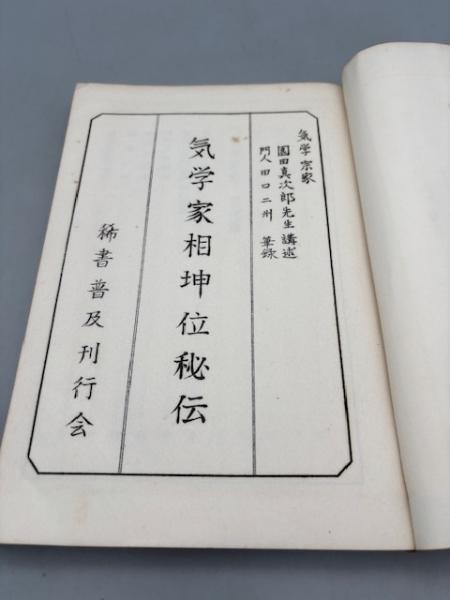 気学宗家
園田真次郎先生講述
門人田口二州 筆録
気学家相坤位秘伝
稀書普及刊行会